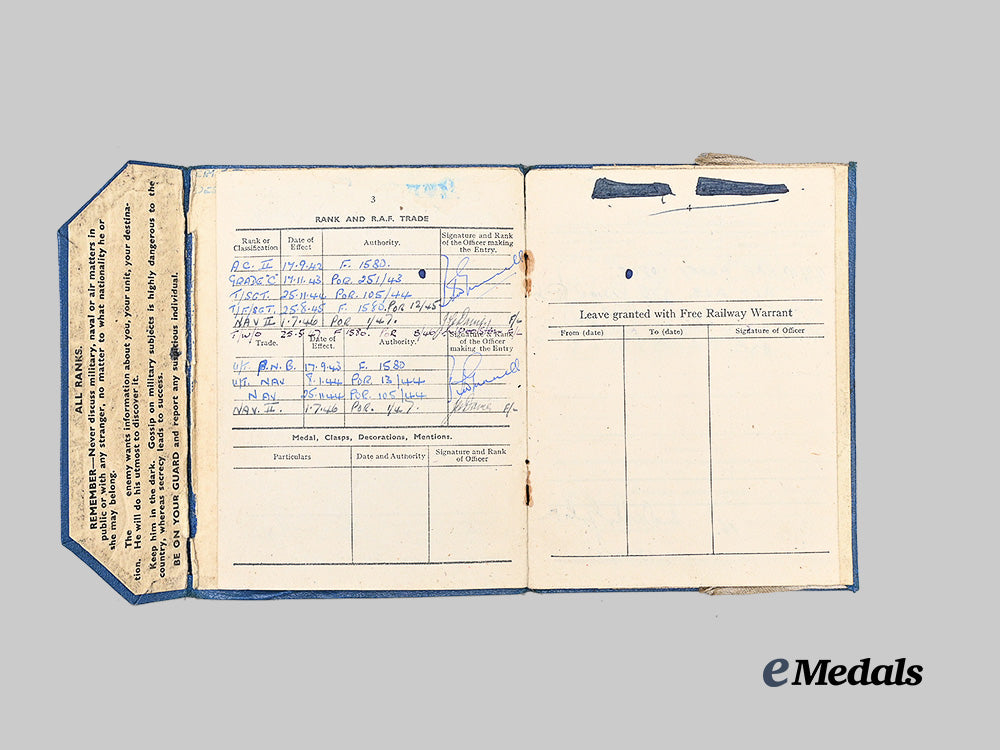 ALL RANKS.
REMEMBER—Never discuss military, naval or air matters in
public or with any stranger, no matter to what nationality he or
she may belong.
The enemy wants information about you, your unit, your destina-
tion. He will do his utmost to discover it.
Keep him in the dark. Gossip on military subjects is highly dangerous to the
country, whereas secrecy leads to success.
BE ON YOUR GUARD and report any suspicious individual.
3
RANK AND R.A.F. TRADE
Rank or Classification Date of Effect Authority. Signature and Rank of the Officer making the Entry.
A.C. II 17.9.42 F. 1580.
GRADE "C" 17.11.43 POR. 251/43
T/SGT. 25.11.44 POR. 105/44
T/F/SGT. 25.8.45 F. 1580. POR 12/45
NAV II 1.7.46 POR 1/47. F/L
T/W/O 25.5.47 F 1580.
Trade. Date of Effect. Authority. Signature & Rank of the Officer making the Entry
U/T. P.N.B. 17.9.42 F. 1580
U/T. NAV 8.1.44 POR. 13/44
NAV. 25.11.44 POR. 105/44
NAV. II. 1.7.46 POR. 1/47. F/L
Medal, Clasps, Decorations, Mentions.
Particulars Date and Authority Signature and Rank of Officer
4
Leave granted with Free Railway Warrant
From (date) To (date) Signature of Officer
eMedals